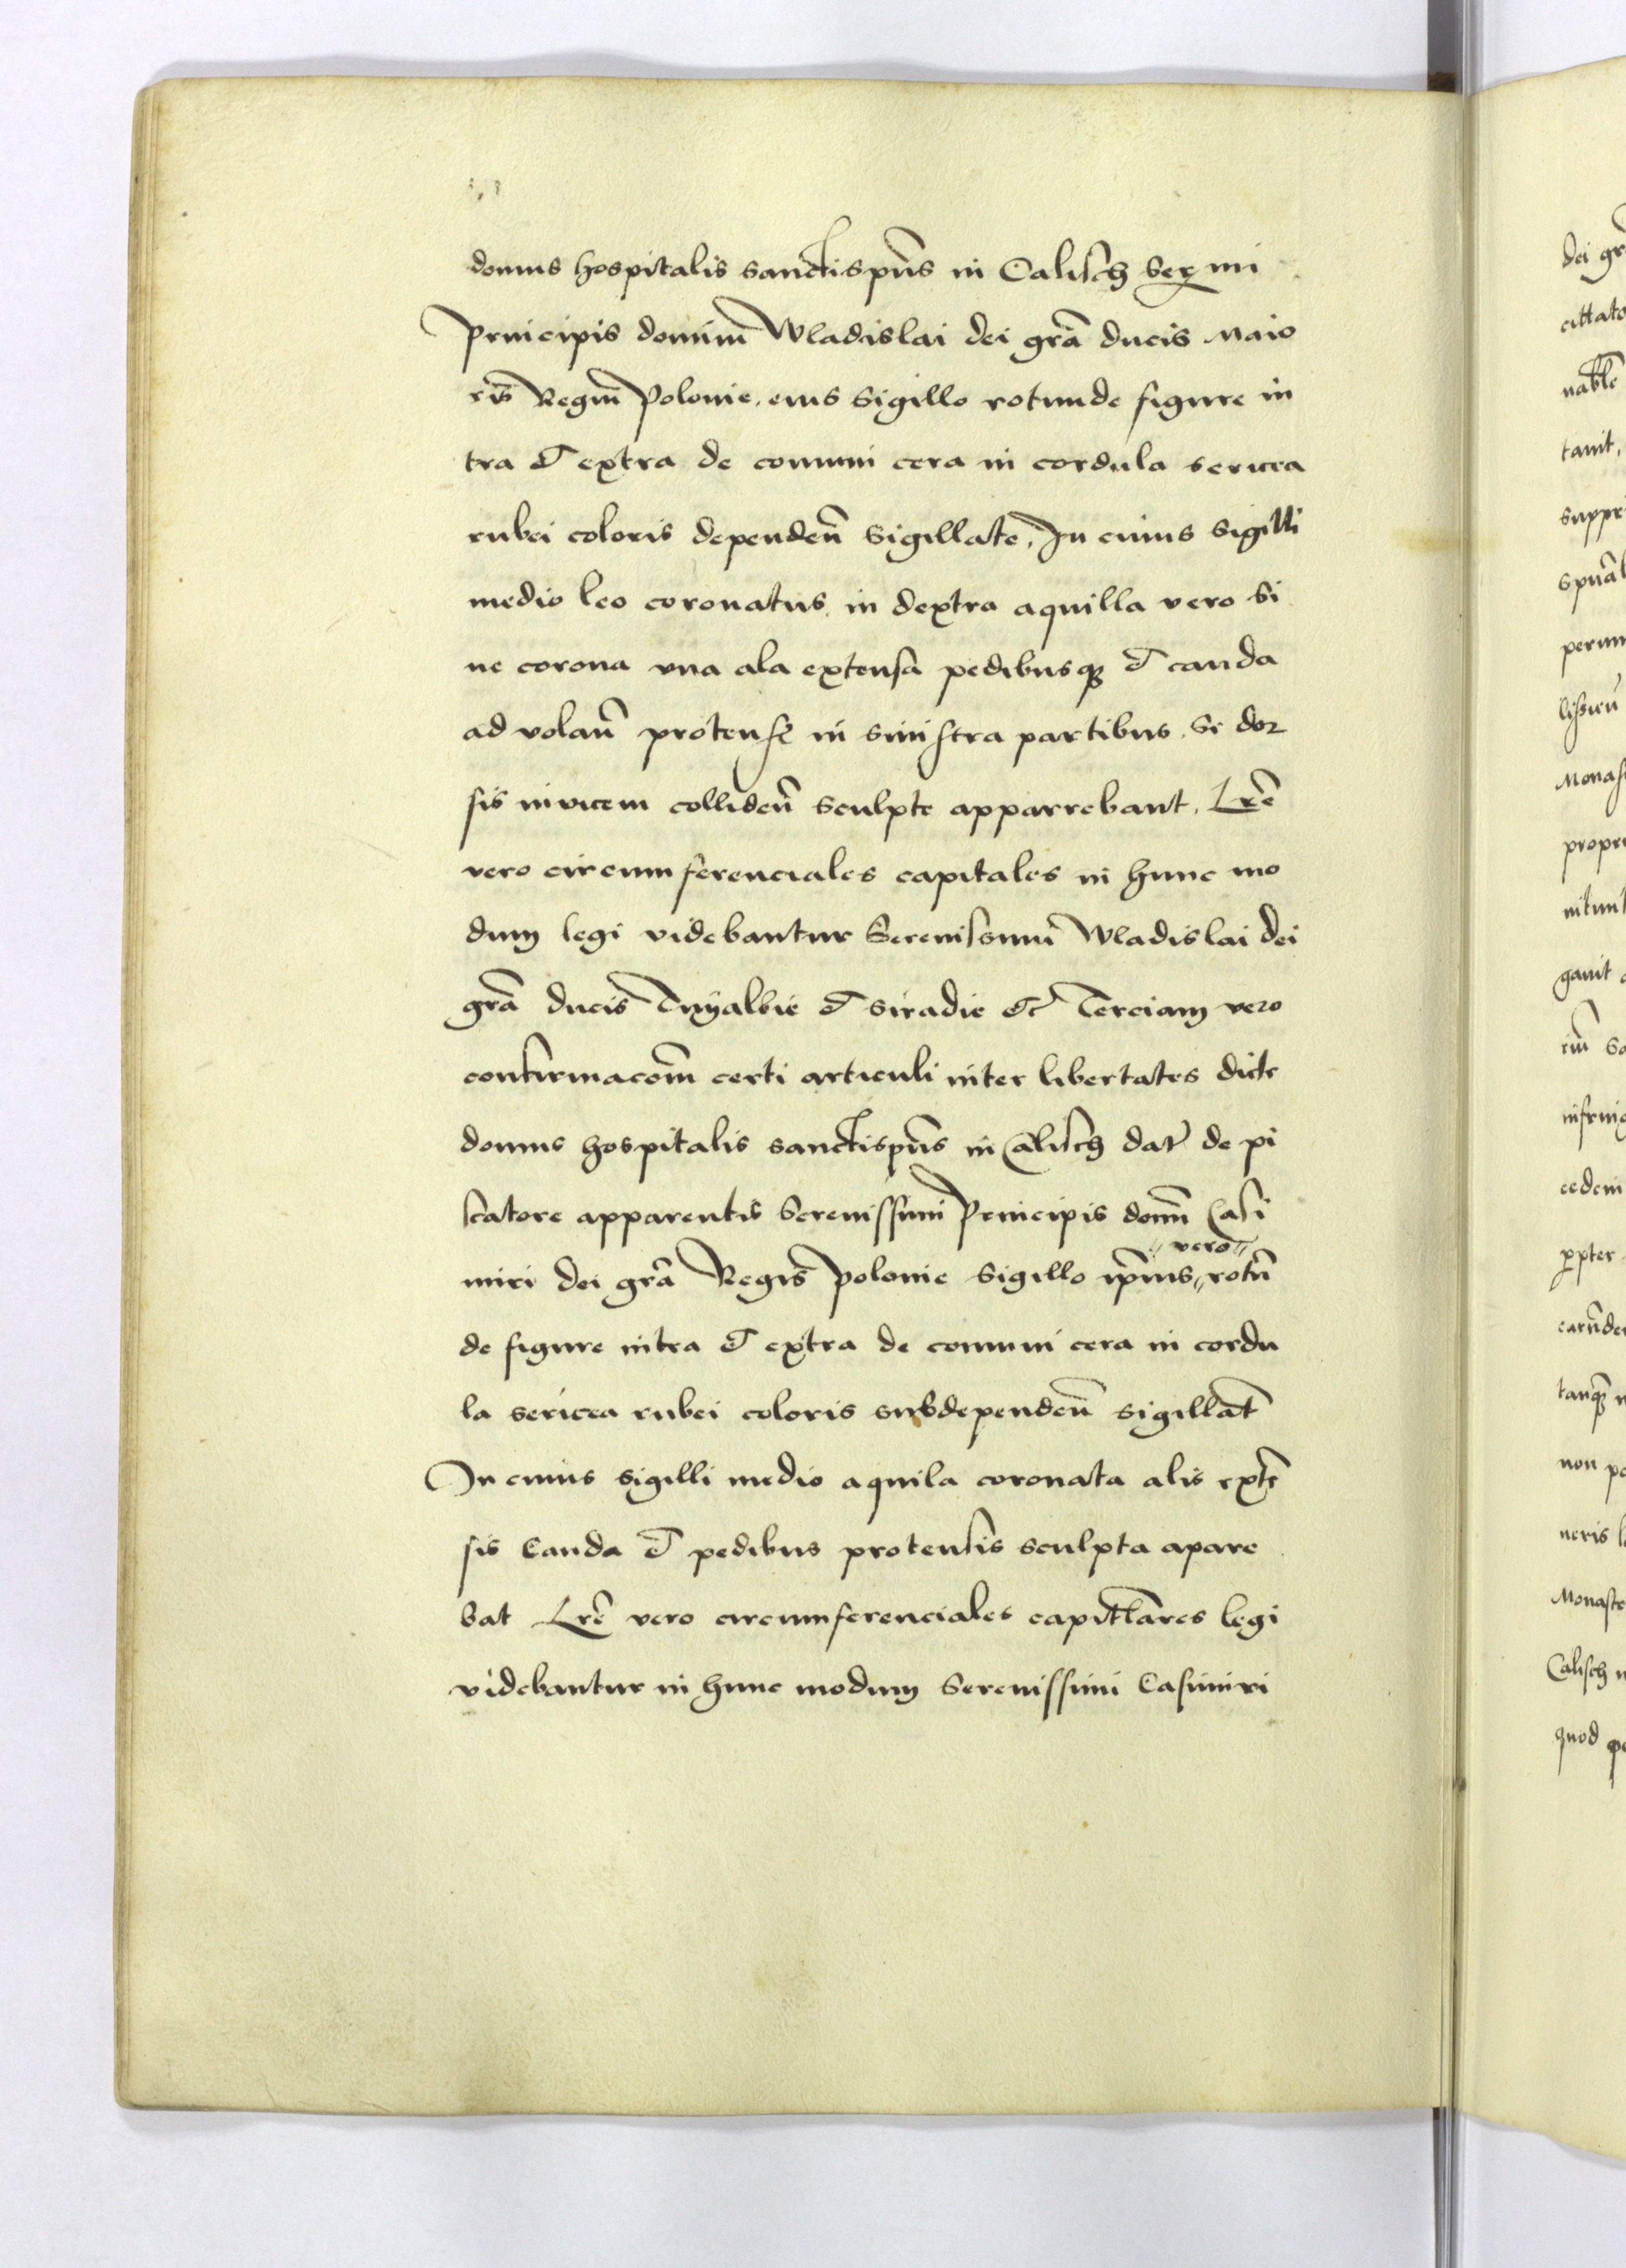 domus hospitalis sanctispũs in Calisch Ser mi
Principis dominī Wladislai dei grã ducis Maio
ris Regnī Polonie, eius Sigillo rotunde figure in
tra et extra de comuni cera in cordula sericea
rubei coloris dependeñ sigillate, In cuius sigilli
medio leo coronatus in dextra aquilla vero Si
ne corona vna ala extensa pedibusqȝ et cauda
ad volañ protense in sinistra partibus se dor
sis invicem collideñ sculpte apparrebant, Lrẽ
vero circumferenciales capitales in hunc mo
dum legi videbantur Serenissimi Wladislai dei
grã ducis Cuyalbie et Siradie etc Terciam vero
confirmacom̃ certi articuli inter libertates dicte
domus hospitalis sanctispũs in Calisch dat̃ de pi
scatore apparentis Serenissimi Principis domī Casi
miri dei grã Regis Polonie Sigillo ip̃ius "vero" rotũ
de figure intra et extra de comuni cera in cordu
la sericea rubei coloris subdependeñ sigillat̃
In cuius sigilli medio aquila coronata alis extẽ
sis Cauda et pedibus protensis sculpta apare
bat Lrẽ vero circumferenciales capitlares legi
videbantur in hunc modum Serenissimi Casimiri
dei gr
cittato
nablẽ
tauit,
suppr
spũal
propri
gauit
infring
eedem
ꝑpter
earũde
tanqȝ
non po
neris
Monaste
Calisch
quod